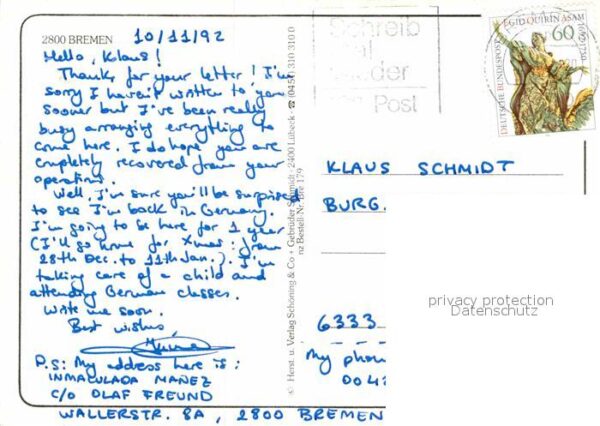 2800 BREMEN
10/11/92
Hello, Klaus!
Thanks for your letter! I'm
sorry I haven't written to you
sooner but I've been really
busy arranging everything to
come here. I do hope you are
completely recovered from your
operation.
Well, I'm sure you'll be surprised
to see I'm back in Germany.
I'm going to be here for 1 year
(I'll go home for Xmas: from
28th Dec. to 11th Jan.). I'm
taking care of a child and
attending German classes.
Write me soon.
Best wishes,
P.S: My address here is:
INMACULADA MAÑEZ
C/O OLAF FREUND
WALLERSTR. 8A, 2800 BREMEN
© Herst. u. Verlag Schöning & Co + Gebrüder Schmidt · 2400 Lübeck · ☎ (0451) 310 310 0
nz Bestell-Nr. Bre 179
Schreib
mal
wieder
Post
EGID QUIRIN ASAM
1692-1750
60
DEUTSCHE BUNDESPOST
KLAUS SCHMIDT
BURG.
6333
My phon
00 4
privacy protection
Datenschutz